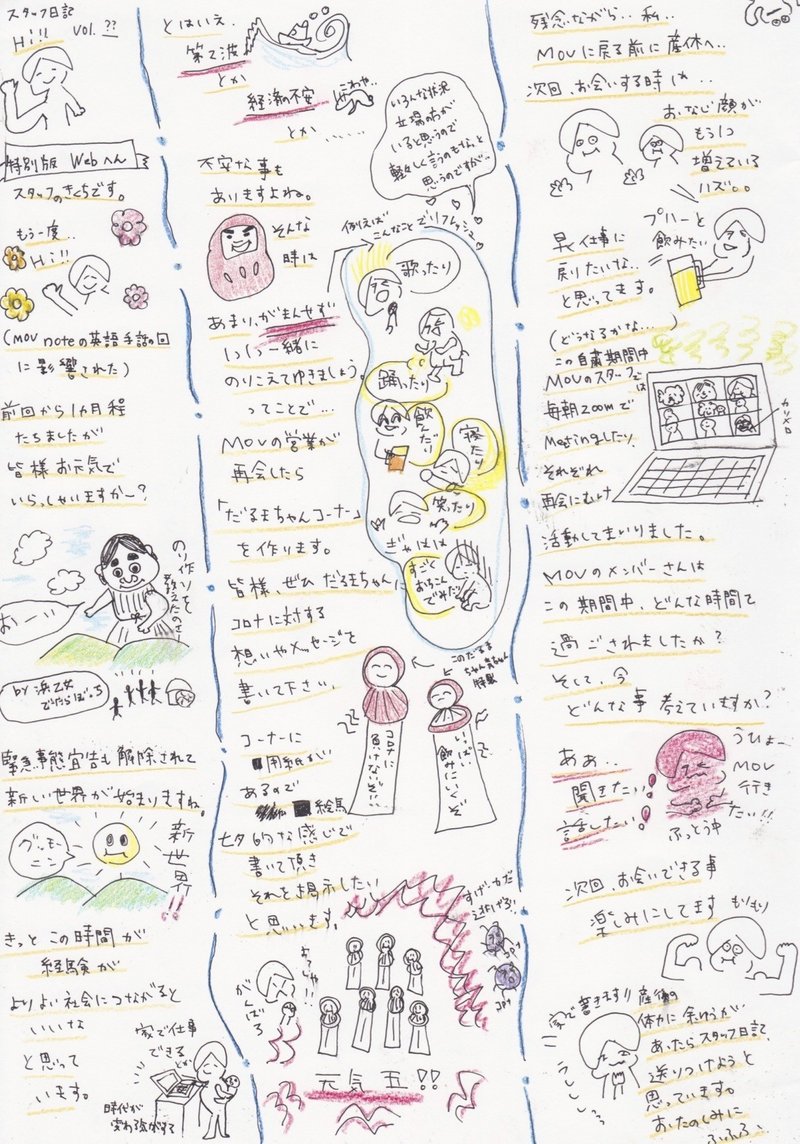 スタッフ日記
Vol. ??
Hi!!
特別版 Webへん
スタッフのきくちです。
もう一度..
Hi!!
(MOV noteの英語手話の回
に影響された)
前回から1カ月程
たちましたが
皆様お元気で
いらっしゃいますかー?
のり作りを
教えたのさ
おーい
by 浜乙女
でたらぼっち
緊急事態宣告も解除されて
新しい世界が始まりますね。
グッモーニン
新世界!!
きっとこの時間が
経験が
よりよい社会につながると
いいな
と思って
います。
家で仕事
できるとか
時代が
変わる気がする
とはいえ、
第2波
とか
経済の不安
こわや..
とか......
不安な事も
ありますよね。
そんな
時は
あまり、がまんせず
いっしょ一緒に
のりこえてゆきましょう。
ってことで...
MOVの営業が
再会したら
「だるまちゃんコーナー」
を作ります。
皆様、ぜひだるまちゃんに
コロナに対する
想いやメッセージを
書いて下さい。
コーナーに
用紙がい
あるので
絵馬
七夕的な感じで
書いて頂き
それを掲示したい
と思います。
いろんな状況
立場の方が
いると思うので
軽々しく言うのもな、と
思うのですが…
例えば
こんなことでリフレッシュ
歌ったり
踊ったり
飲んだり
寝たり
笑ったり
ぎゃははは
すごく
おちこん
でみたり
このだるま
ちゃん
特製
コロナに
負けないぞい
いっぱい
飲みにいくぞ
がんばろ
元気玉!!
残念ながら... 私...
MOVに戻る前に産休へ..
次回、お会いする時は..
おなじ顔が
もう1つ
増えている
ハズ。。
プハーと
飲みたい
早く仕事に
戻りたいな..
と思ってます。
(どうなるかな...)
この自粛期間中
MOVのスタッフでは
毎朝zoomで
Meetingしたり、
カリメロ
それぞれ
再会にむけ
活動してまいりました。
MOVのメンバーさんは
この期間中、どんな時間で
過ごされましたか?
そして、今
どんな事 考えていますか?
ああ..
聞きたい
話したい
うひょー
MOV
行き
たい!!
ふっとう中
次回、お会いできる事
楽しみにしてます
もりもり
家で書きます!!
産後の
体力に余ゆうが
あったらスタッフ日記
送りつけようと
思っています。
おたのしみに
ふふふ、